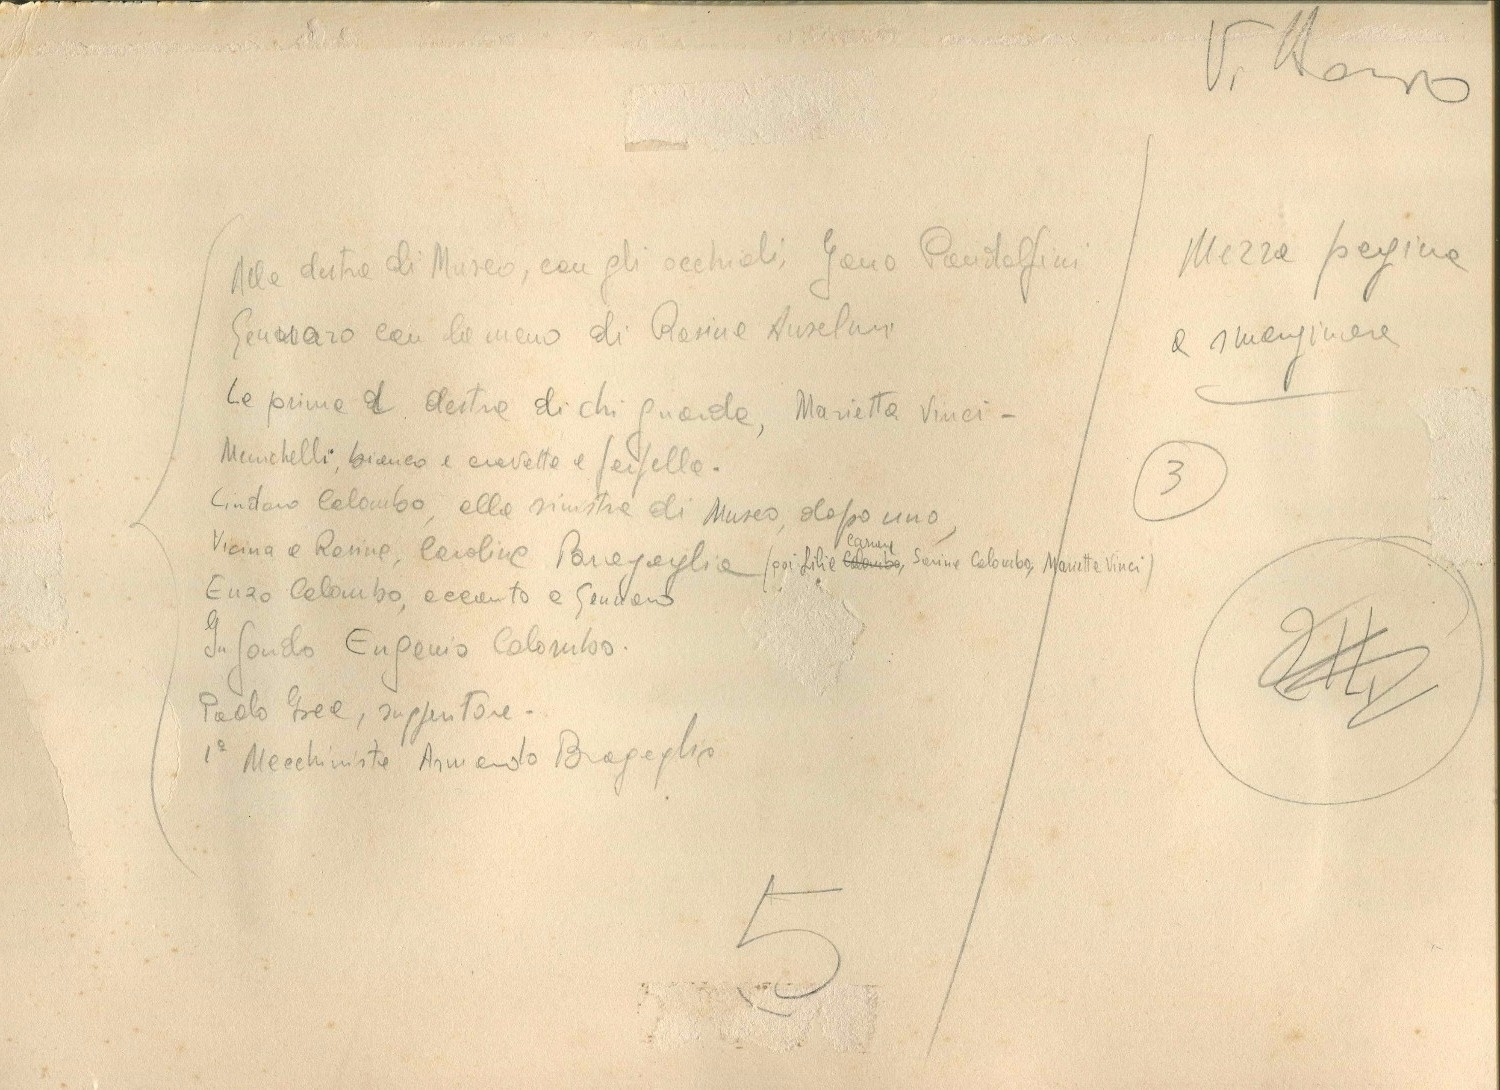 Vittorio
Alla destra di Musco, con gli occhiali, Jano Pandolfini
Gennaro con la mano di Rosina Anselmi
La prima a destra di chi guarda, Marietta Vinci -
Menichelli, bianco e cravatta a farfalla.
Colombo, alla sinistra di Musco, dopo uno,
Vicina a Rosina, Carolina Bragaglia (poi Lilia Carini Colombo, Sarina Colombo, Marietta Vinci)
Enzo Colombo, accanto a Gennaro
In fondo Eugenio Colombo.
Paolo, suggeritore -
1° Macchinista Armando Bragaglia
5
Mezza pagina
a smarginare
3